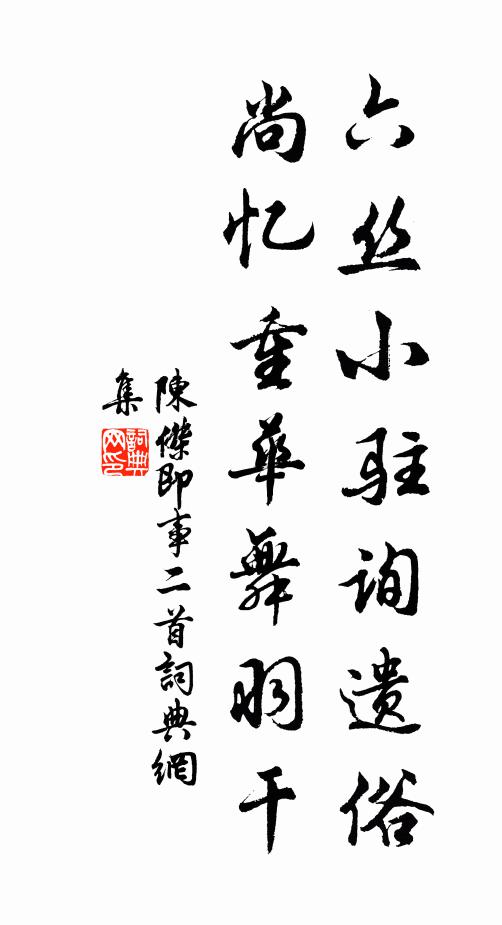 六丝小驻询遗俗
尚忆重华舞羽干
陳傑即事二首詞典網
集
詞典
网印